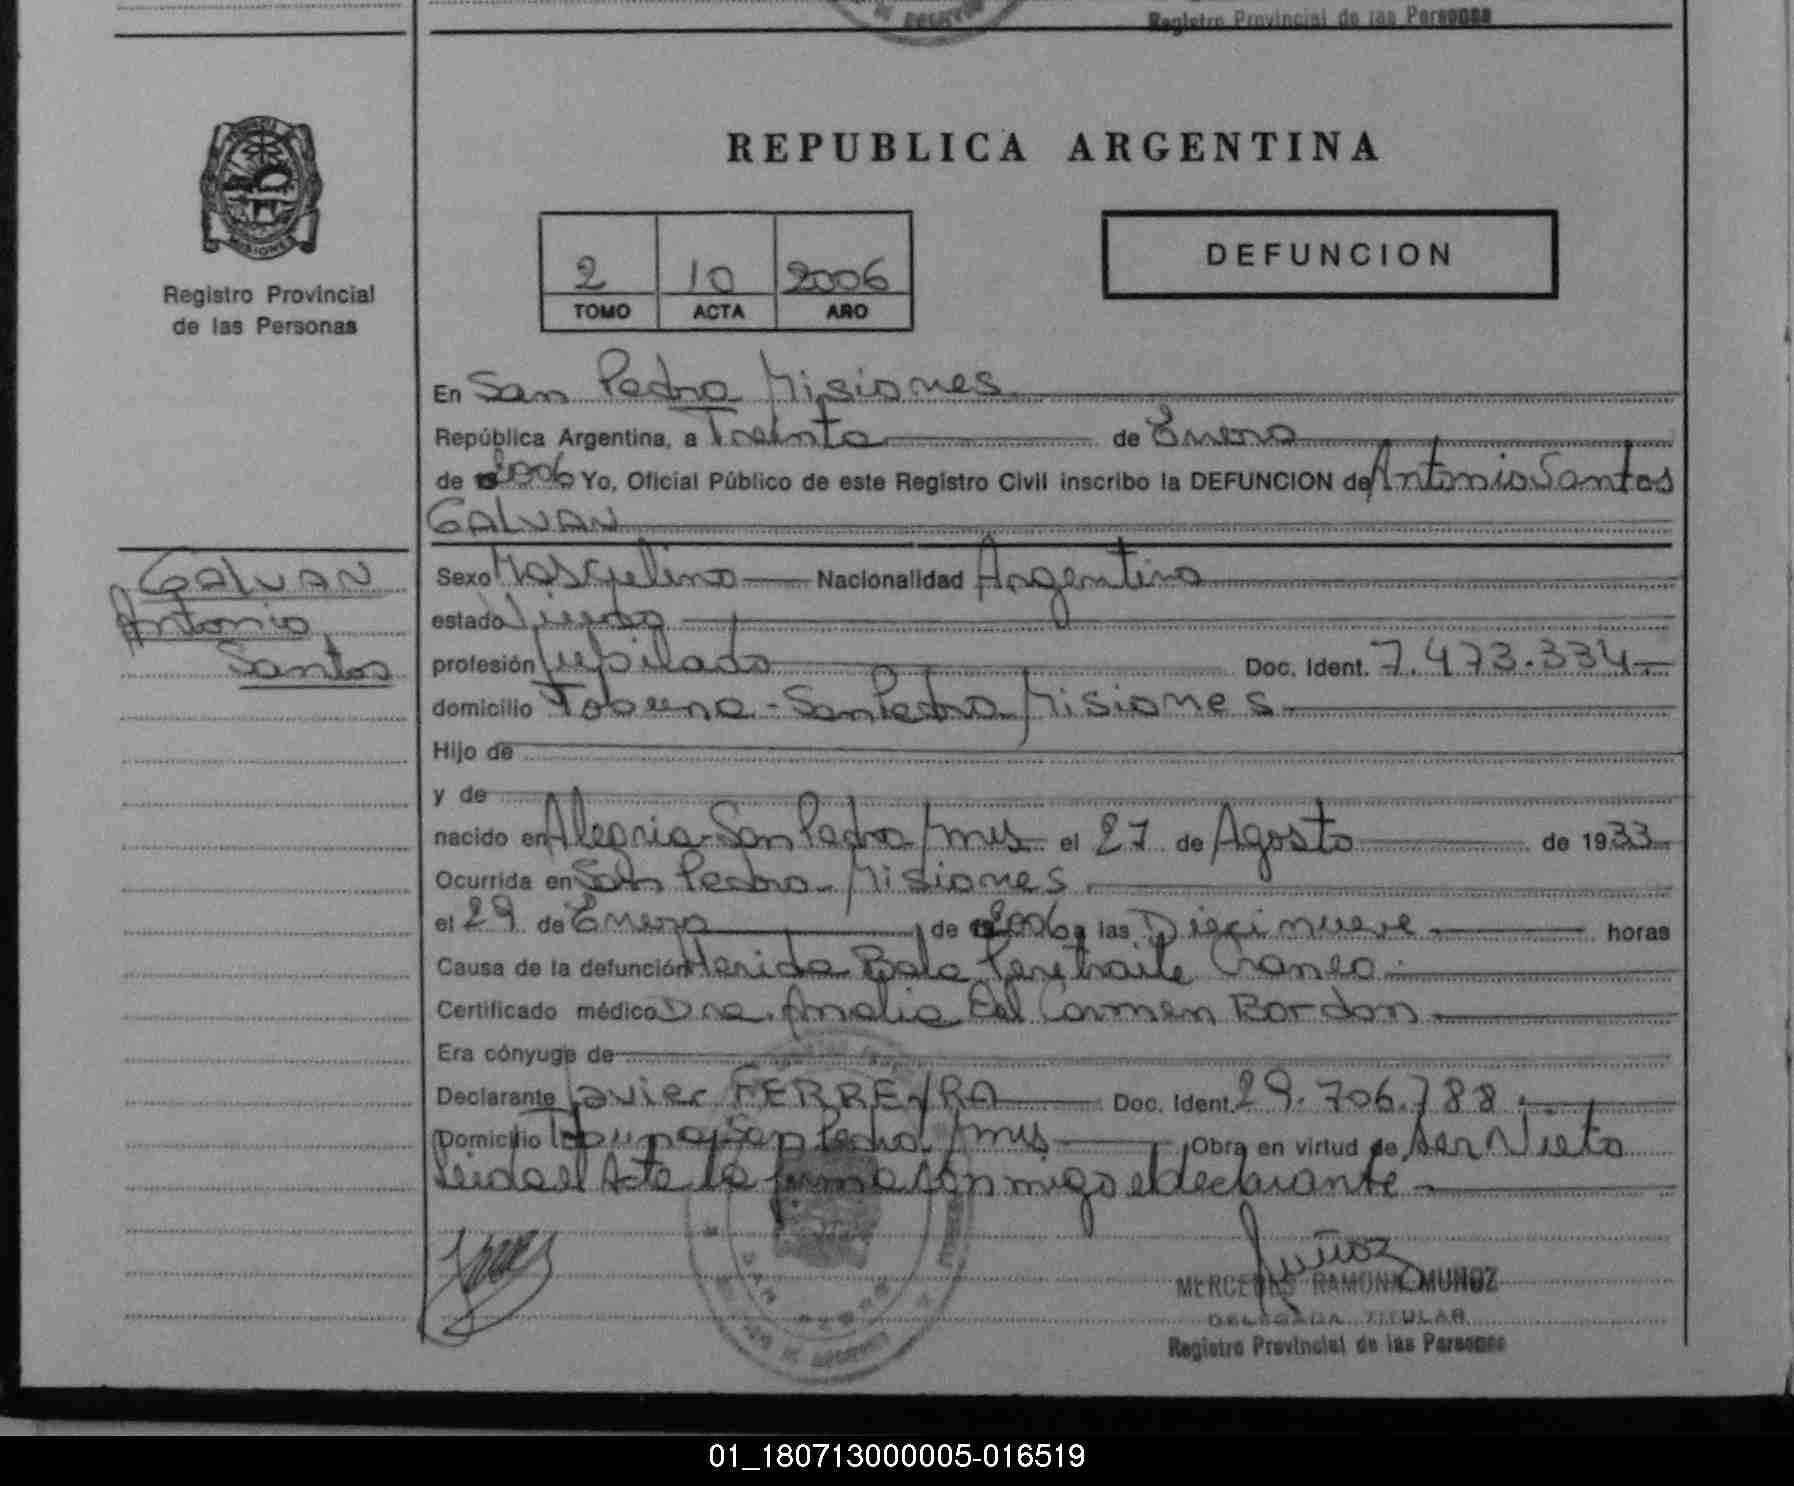 Registro Provincial de las Personas
REPUBLICA ARGENTINA
MISIONES
Registro Provincial
de las Personas
2 10 2006
TOMO ACTA AÑO
DEFUNCION
En San Pedro Misiones
República Argentina, a Treinta de Enero
de 2006 Yo, Oficial Público de este Registro Civil inscribo la DEFUNCION de Antonio Santos
GALVAN
GALVAN
Antonio
Santos
Sexo Masculino Nacionalidad Argentina
estado Viudo
profesión Jubilado Doc. Ident. 7.473.334.-
domicilio Tobuna - San Pedro Misiones
Hijo de
y de
nacido en Alegria - San Pedro Mns el 27 de Agosto de 1933
Ocurrida en San Pedro Misiones
el 29 de Enero de 2006 a las Diecinueve horas
Causa de la defunción Herida Bala Craneo.
Certificado médico Dra. Amalia Del Carmen Bordon
Era cónyuge de
Declarante Javier FERREYRA Doc. Ident. 29.706.788.
Domicilio Tobuna San Pedro Mns Obra en virtud de ser Nieto
Leida el Acta la firma conmigo el declarante
Muñoz
MERCEDES RAMONA MUÑOZ
DELEGADA TITULAR
Registro Provincial de las Personas
SAN PEDRO
01_180713000005-016519